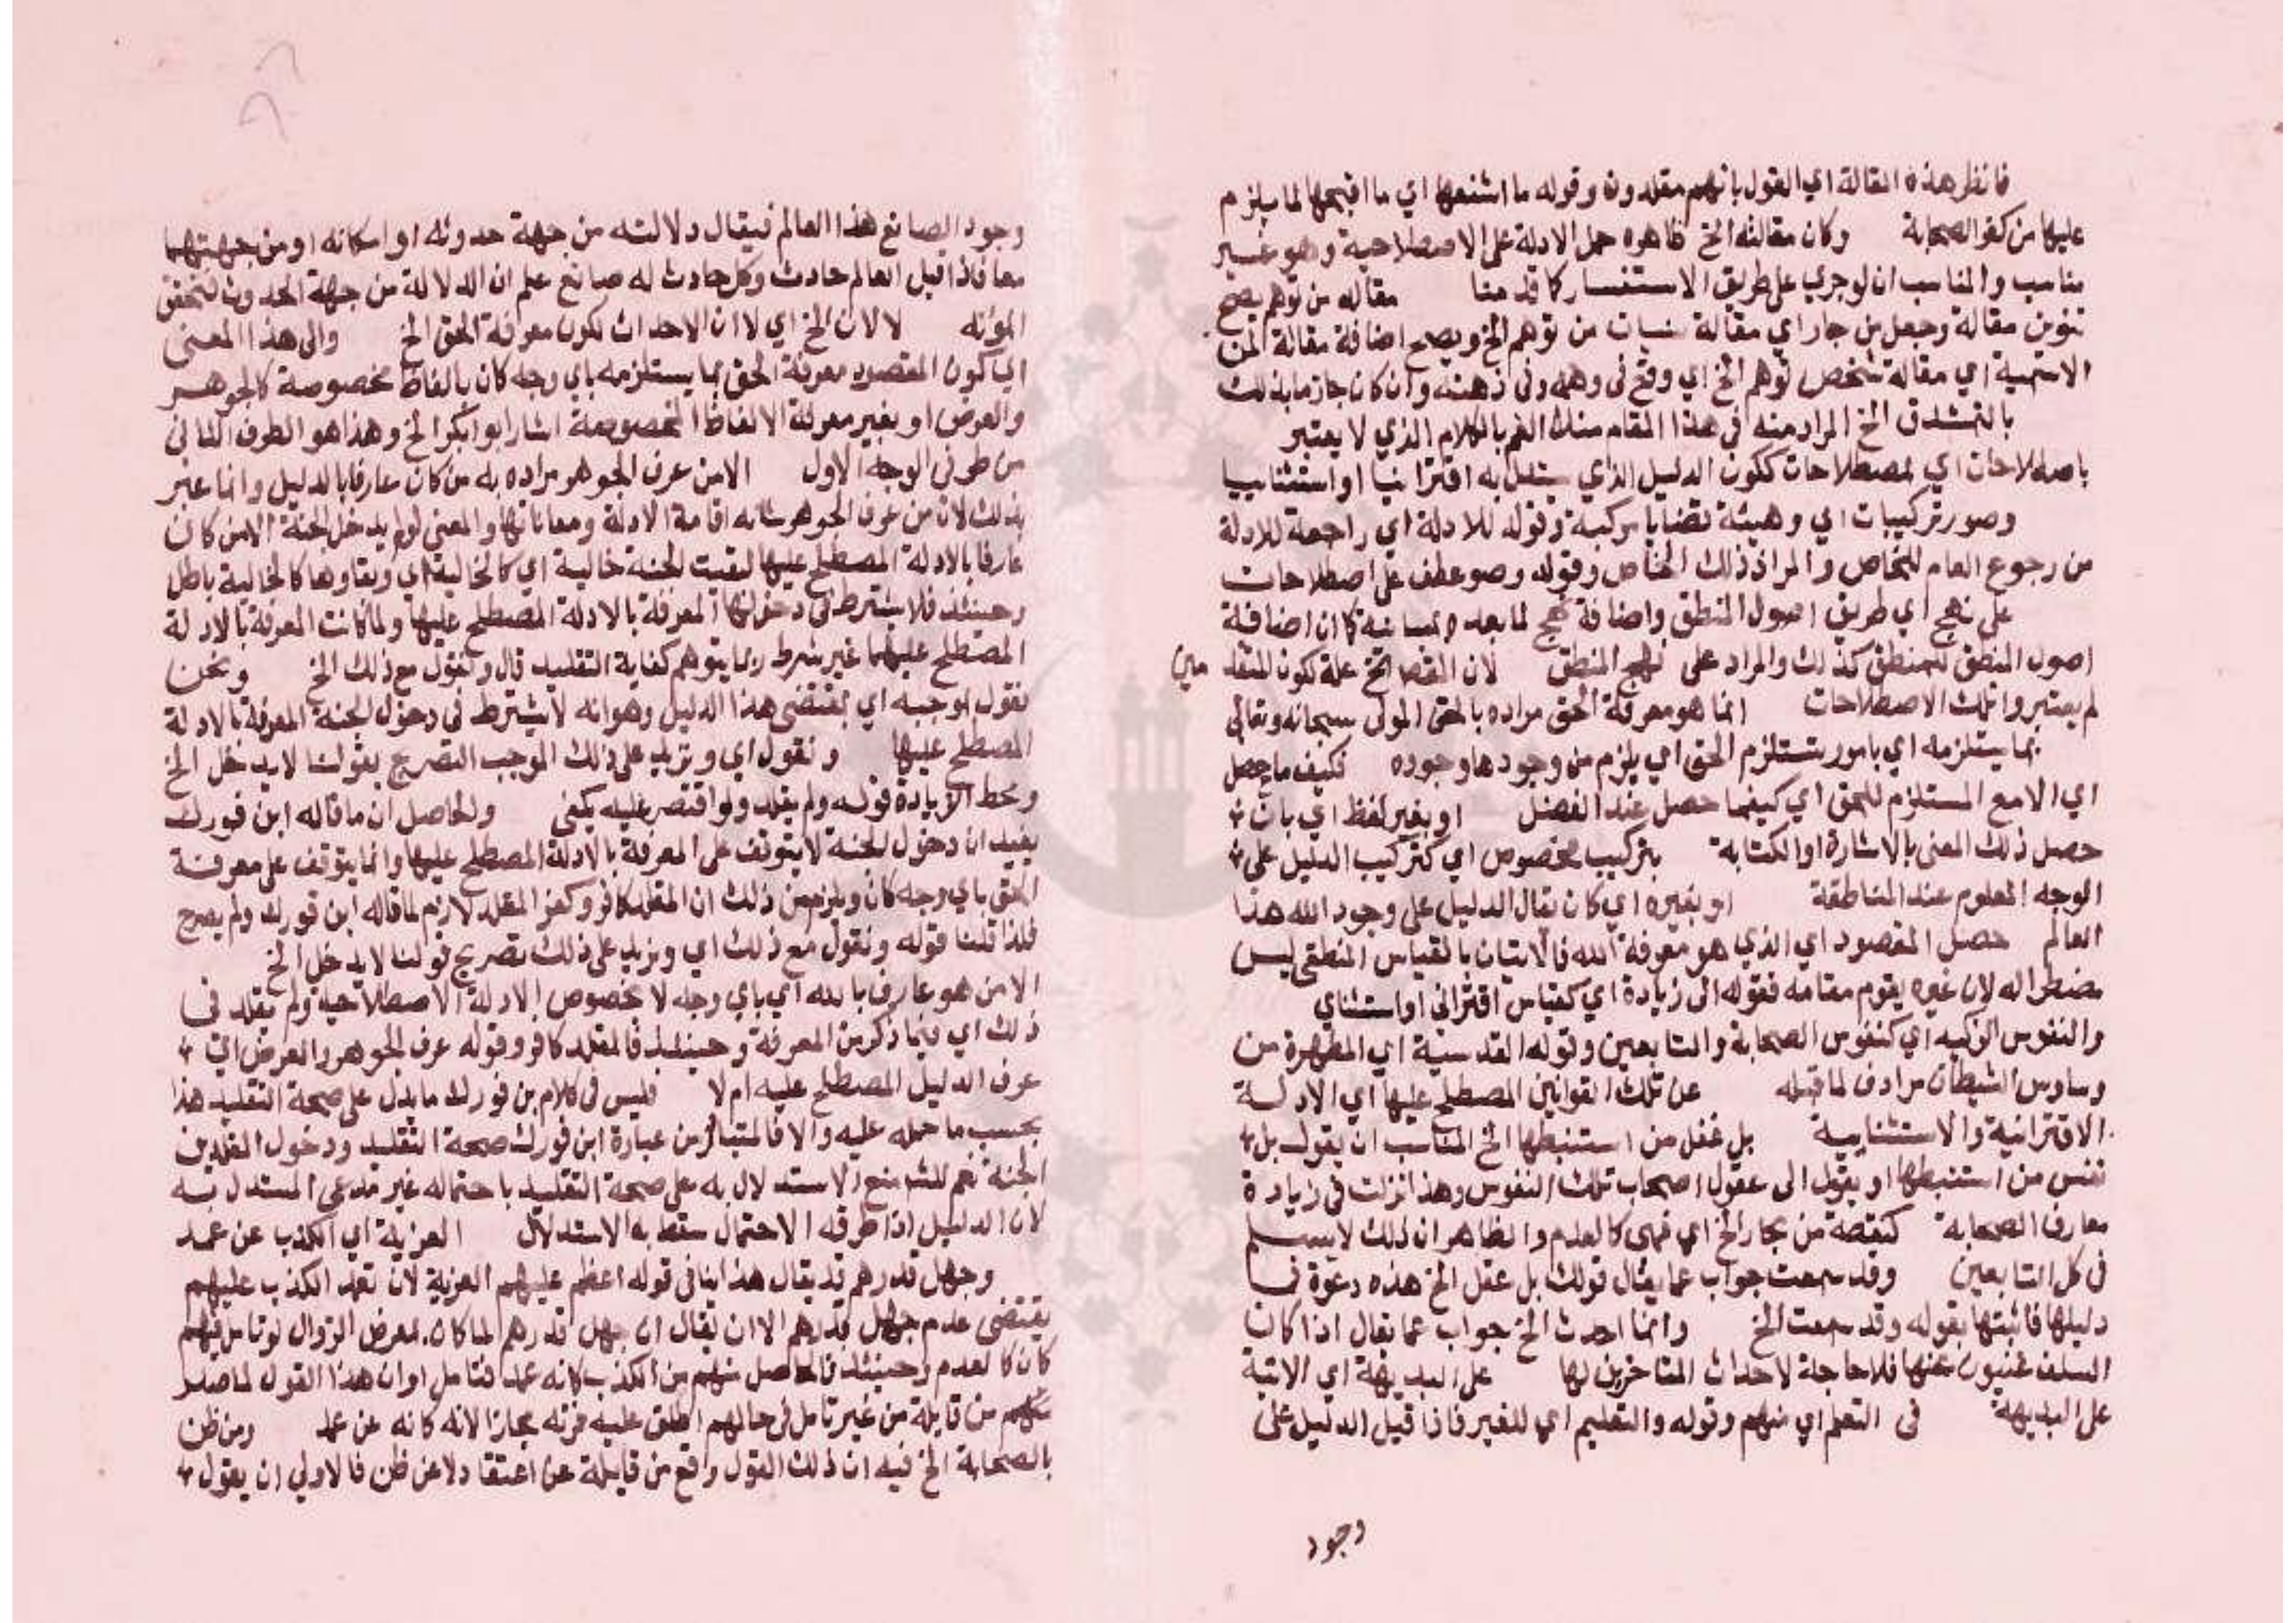 فانظر هذه المقالة اي القول بانهم مقلدون وقوله ما اشنعها اي ما اقبحها لما يلزم
عليها من كفر الصحابة وكان مقالته الخ ظاهره حمل الادلة على الاصطلاحية وهو غير
مناسب والمناسب ان لو جري على طريق الاستفسار كما قدمنا مقاله من توهم يصح
تنوين مقالة وجعل من جار اي مقالة نشات من توهم الخ ويصح اضافة مقالة لمن
الاسمية اي مقالة شخص توهم الخ اي وقع في وهمه وفي ذهنه وان كان جازما بذلك
بالتشدق الخ المراد منه في هذا المقام منك الفم بالكلام الذي لا يعتبر
باصطلاحات اي لمصطلحات ككون الدليل الذي يستدل به اقترانيا او استثنائيا
وصور تركيبات اي وهيئة قضايا مركبة وقوله للادلة اي راجعة للادلة
من رجوع العام للخاص والمراد ذلك الخاص وقوله وصور عطف على اصطلاحات
على نهج اي طريق اصول المنطق واضافة نهج لما بعده بيانية كما ان اضافة
اصول المنطق للمنطق كذلك والمراد على نهج المنطق لان القصد الخ علة لكون المتقدمين
لم يعتبروا تلك الاصطلاحات انما هو معرفة الحق مراده بالحق المولى سبحانه وتعالى
بما يستلزمه اي بامور تستلزم الحق اي يلزم من وجودها وجوده فكيف ما حصل
اي الامر المستلزم للحق اي كيفما حصل عند الفصل او بغير لفظ اي بان
حصل ذلك المعنى بالاشارة او الكتابة بتركيب مخصوص اي كتركيب الدليل على
الوجه المعلوم عند المناطقة او بغيره اي كان يقال الدليل على وجود الله هذا
العالم حصل المقصود اي الذي هو معرفة الله فالاتيان بالقياس المنطقي ليس
مضطرا له لان غيره يقوم مقامه فقوله الى زيادة اي كقياس اقتراني او استثناي
والنفوس الزكيه اي كنفوس الصحابة والتابعين وقوله القدسية اي المطهرة من
وساوس الشيطان مرادف لما قبله عن تلك القوانين المصطلح عليها اي الادلة
الاقترانية والاستثنايية بل عقل من استنبطها الخ المناسب ان يقول بل
نفس من استنبطها او يقول الى عقول اصحاب تلك النفوس وهذا نزلت في زيادة
معارف الصحابة كنقطة من بحار الخ اي فهى كالعدم والظاهر ان ذلك لا يسلم
في كل التابعين وقد سمعت جواب عما يقال قولك بل عقل الخ هذه دعوة فما
دليلها فاثبتها بقوله وقد سمعت الخ وانما احدث الخ جواب عما يقال اذا كان
السلف غنيون عنها فلا حاجة لاحداث المتاخرين لها على البديهة اي الاتية
على البديهة في التعلم اي منهم وقوله والتعليم اي للغير فاذا قيل الدليل على
وجود
وجود الصانع هذا العالم فيقال دلالته من جهة حدوثه او امكانه او من جهتهما
معا فاذا قيل العالم حادث وكل حادث له صانع علم ان الدلالة من جهة الحدوث لتحقق
المؤنه لا لان الخ اي لا ان الاحداث لكون معرفة الحق الخ والى هذا المعنى
اي كون المقصود معرفة الحق بما يستلزمه باي وجه كان بالفاظ مخصوصة كالجوهر
والعرض او بغير معرفة الالفاظ المخصوصة اشار ابو بكر الخ وهذا هو الطرف الثاني
من طرفي الوجه الاول الا من عرف الجوهر مراده به من كان عارفا بالدليل وانما عبر
بذلك لان من عرف الجوهر شانه اقامة الادلة ومعاناتها والمعنى لو لم يدخل الجنة الا من كان
عارفا بالادلة المصطلح عليها لبقيت الجنة خالية اي كالخالية اي وبقاوها كالخالية باطل
وحينئذ فلا يشترط في دخولها المعرفة بالادلة المصطلح عليها ولما كانت المعرفة بالادلة
المصطلح عليها غير شرط ربما يتوهم كفاية التقليد قال ونقول مع ذلك الخ ونحن
نقول بموجبه اي بمقتضى هذا الدليل وهو انه لا يشترط في دخول الجنة المعرفة بالادلة
المصطلح عليها ونقول اي ونزيد على ذلك الموجب التصريح بقولنا لا يدخل الخ
ومحط الزيادة قوله ولم يقلد ولو اقتصر عليه يكفى والحاصل ان ما قاله ابن فورك
يفيد ان دخول الجنة لا يتوقف على المعرفة بالادلة المصطلح عليها وانما يتوقف على معرفة
الحق باي وجه كان ويلزم من ذلك ان المقلد كافر وكفر المقلد لازم لما قاله ابن فورك ولم يصرح
فلذا قلنا قوله ونقول مع ذلك اي ونزيد على ذلك تصريح قولنا لا يدخل الخ
الا من هو عارف بالله اي باي وجه لا بخصوص الادلة الاصطلاحية ولم يقلد في
ذلك اي فيما ذكر من المعرفة وحينئذ فالمقلد كافر وقوله عرف الجوهر والعرض اي
عرف الدليل المصطلح عليه ام لا فليس في كلام بن فورك ما يدل على صحة التقليد هذا
بحسب ما حمله عليه والا فالمتبادر من عبارة ابن فورك صحة التقليد ودخول المقلدين
الجنة نعم لك منع الاستدلال به على صحة التقليد باحتماله غير مدعى المستدل به
لان الدليل اذا طرقه الاحتمال سقط به الاستدلال الفرية اي الكذب عن عمد
وجهل قدرهم قد يقال هذا ينافي قوله اعظم عليهم الفرية لان تعمد الكذب عليهم
يقتضى عدم جهل قدرهم الا ان يقال ان جهل قدرهم لما كان بمعرض الزوال لو تامل فيهم
كان كالعدم وحينئذ فالحاصل منهم من الكذب كانه عمد فتامل او ان هذا القول لما صدر
منهم من قايله من غير تامل في حالهم اطلق عليه فرية مجازا لانه كانه عن عمد ومن ظن
بالصحابة الخ فيه ان ذلك القول واقع من قايله عن اعتقاد لا عن ظن فالاولي ان يقول